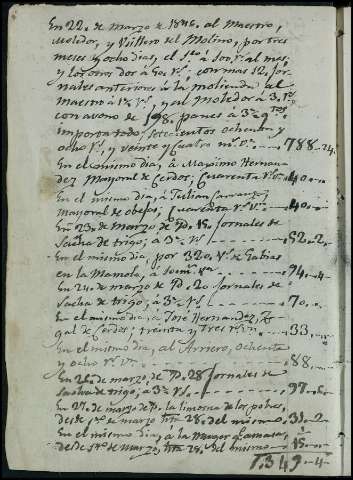 En 22. de Marzo de 1846. al Maestro,
Moledor, y Vsillero del Molino, por tres
meses y ocho dias, el 1º. á 100 rs. al mes,
y los otros dos á 60 rs. con mas 12. jor-
nales anteriores á la molienda al
Maestro á rs. y al Moledor á 3. rs.
con abono de 198. panes á 3. qtos.
importa todo, setecientos ochenta y
ocho rs. y veinte y cuatro ms. vn. 788-24.
En el mismo dia, á Maximo Hernan-
dez Mayoral de Cerdos; Cuarenta rs. 40-
En el mismo dia, á Julian
Mayoral de obejas; Cuarenta rs. vn. 40-
En 23. de Marzo de Pdo. 15. jornales de
Sacha de trigo, á 3 rs. 52-2.
En el mismo dia, por 320. vs. de Gabias
en la Mamola, á 94-4
En 24. de marzo de Pdo. 20 jornales de
Sacha de trigo, á 3 rs. 70-
En el mismo dia, á Jose Hernandez,
gal de Cerdos; treinta y tres rs. vn. 33-
En el mismo dia, al Arriero, ochenta
y ocho rs. vn. 88-
En 26. de marzo, de Pdo. 28 jornales de
Sacha de trigo, á 3 rs. 97-6
En 27. de marzo de Pdo. la limosna de los pobres,
desde 1º. de marzo hta. 28. del mismo, 31-2
En el mismo dia, á la Mayor
desde 1º. de Marzo, hta. 28. del mismo 15-
1.349-4-